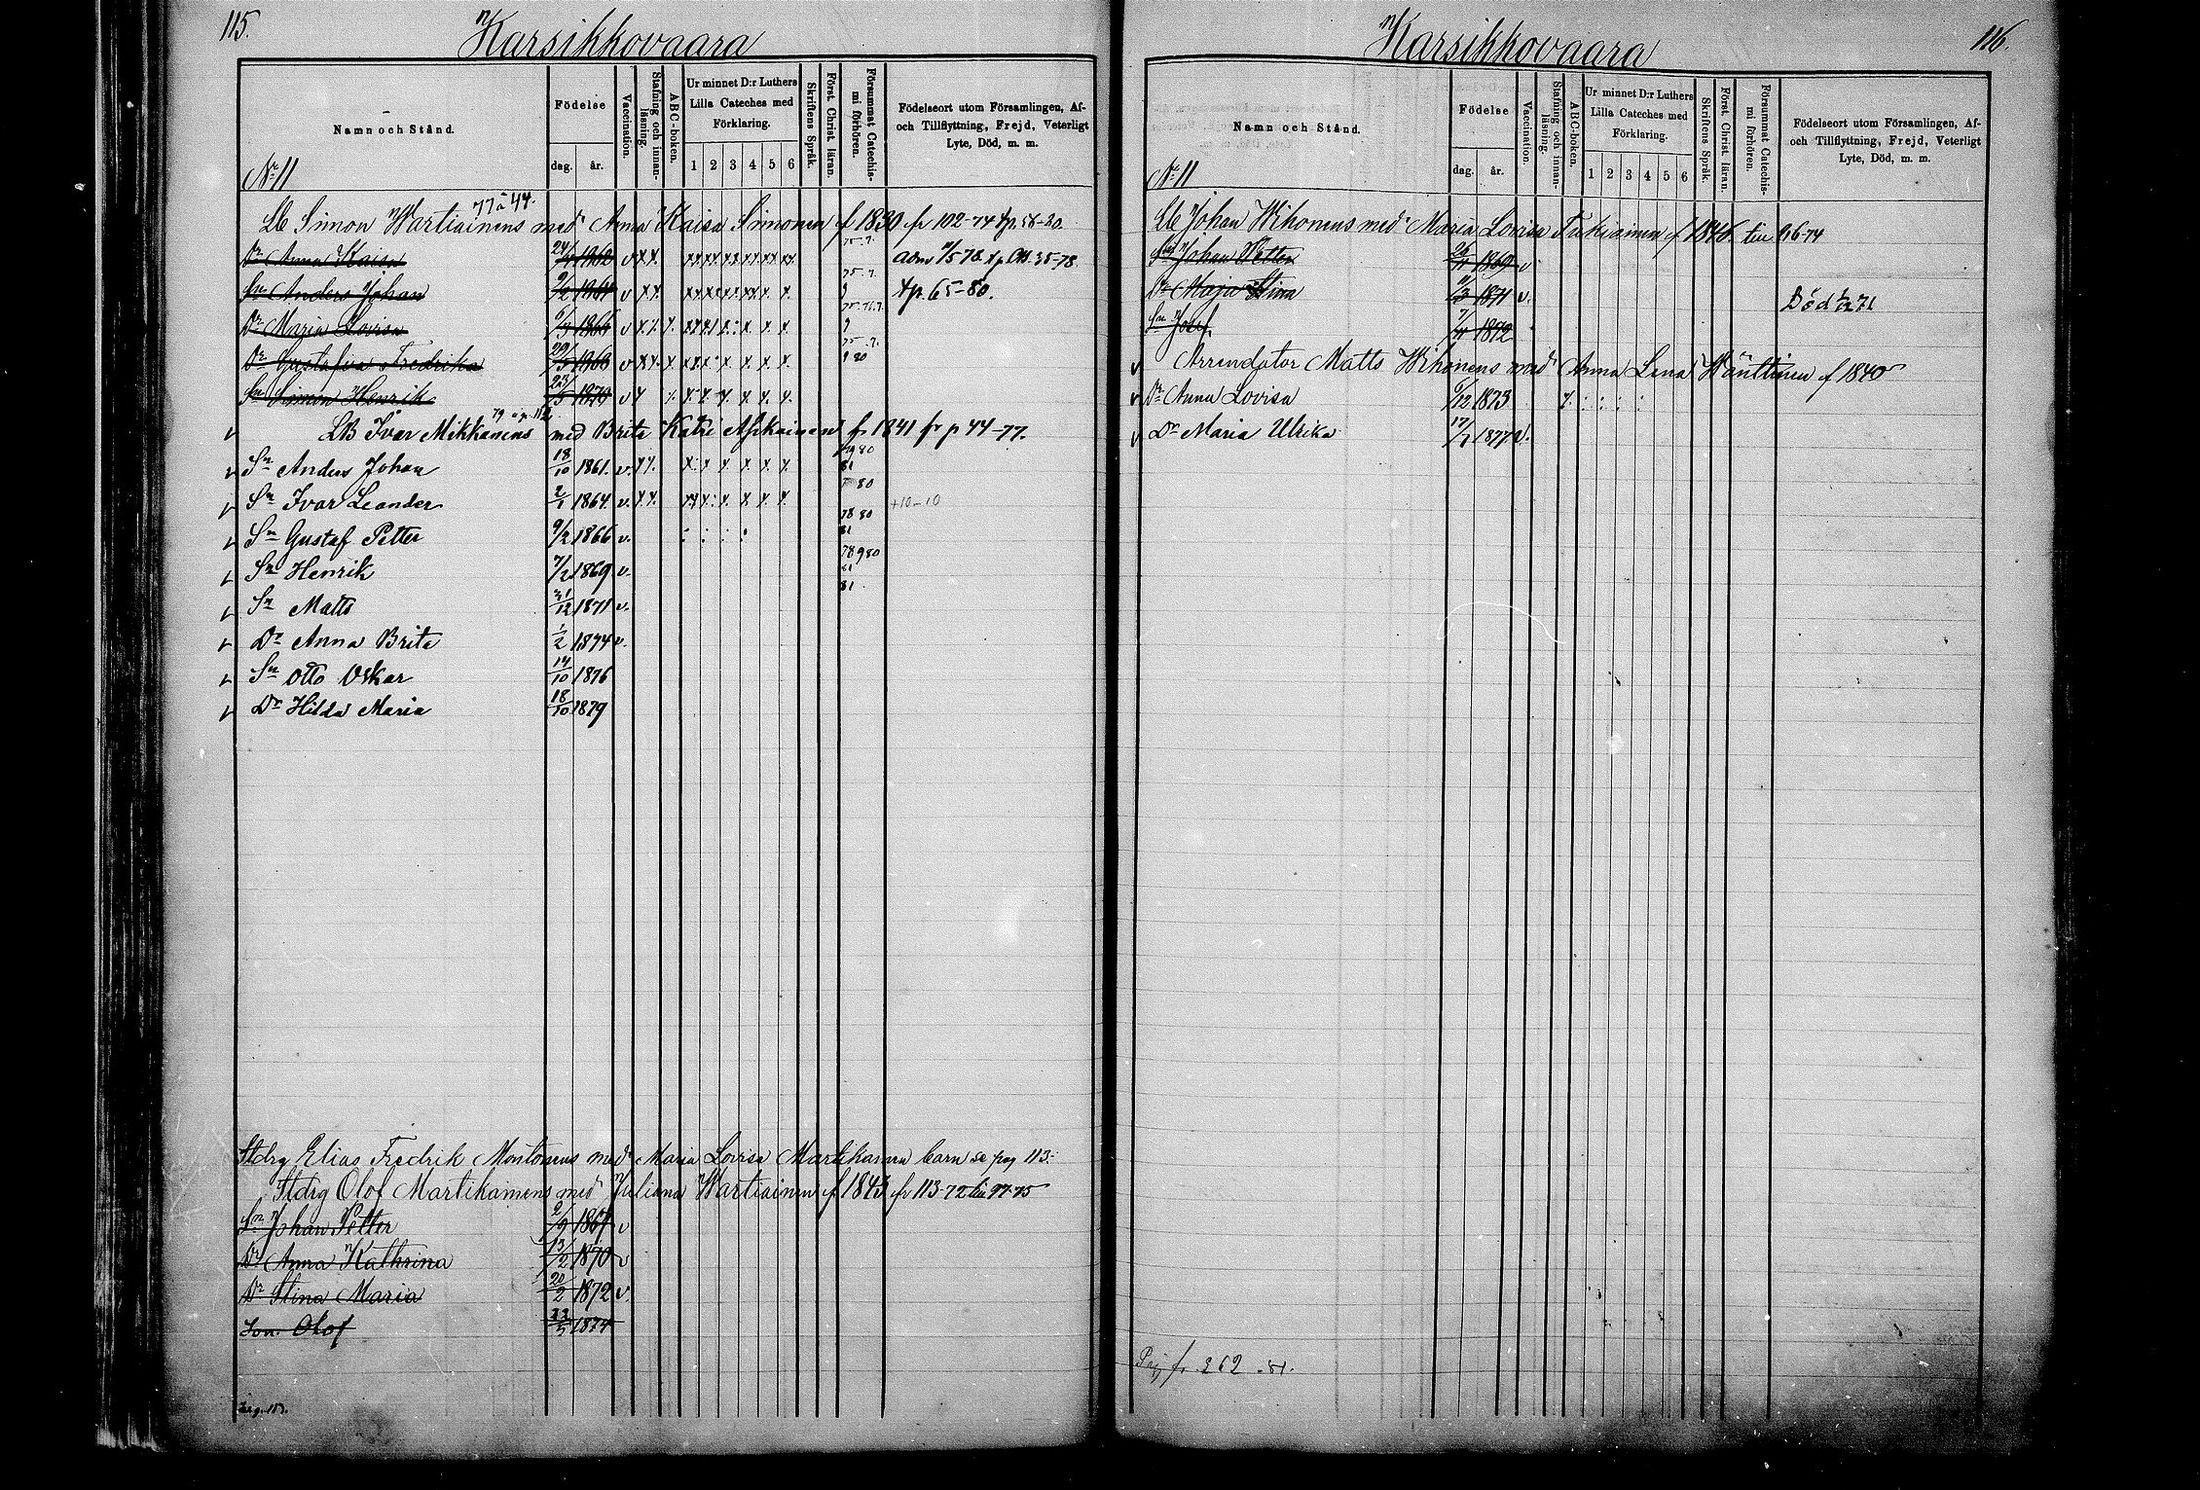 115.
Karsikkovaara
Namn och Stånd.
Födelse
dag. år.
Vaccination.
Stafning och innanläsning.
ABC-boken.
Ur minnet D:r Luthers Lilla Cateches med Förklaring.
1 2 3 4 5 6
Skriftens Språk.
Först. Christ. läran.
Försummat Catechismi förhören.
Födelseort utom Församlingen, Af- och Tillflyttning, Frejd, Veterligt Lyte, Död, m. m.
No 11
77 à 44.
Lb Simon Wartiainens med Anna Kaisa Simonen f 1830 fr 102-74 tp. 58-80
Dr Anna Kaisa v
Sn Anders Johan 9/2 1864 v tp. 65-80.
Dr Maria Lovisa 6/3 1866 v
Dr Gustafva Fredrika v
Sn Simon Henrik v
LB Ivar Mikkanens med Brita Katri f. 1841 fr p 44-77.
Sn Anders Johan 18/10 1861. v.
Sn Ivar Leander 2/1 1864 v. +10-10
Sn Gustaf Petter 9/2 1866 v.
Sn Henrik 7/2 1869 v.
Sn Matts 31/12 1871 v.
Dr Anna Brita 1/2 1874 v.
Sn Otto Oskar 14/10 1876
Dr Hilda Maria 18/10 1879
Stdrg Elias Fredrik Montonens med Maria Lovisa Martikainen barn se pag 113.
Stdrg Olof Martikainens med Juliana Wartiainen f 1843 fr 113-72 till 97-75
Sn Johan Petter 2/9 1867 v
Dr Anna Kathrina 13/2 1870 v
Dr Stina Maria 20/2 1872 v.
Son Olof 23/5 1874
116.
Karsikkovaara
Namn och Stånd.
Födelse
dag. år.
Vaccination.
Stafning och innanläsning.
ABC-boken.
Ur minnet D:r Luthers Lilla Cateches med Förklaring.
1 2 3 4 5 6
Skriftens Språk.
Först. Christ. läran.
Försummat Catechismi förhören.
Födelseort utom Församlingen, Af- och Tillflyttning, Frejd, Veterligt Lyte, Död, m. m.
No 11
Lb Johan Wihonens med Maria Lovisa f 1846 till 96-74
Sn Johan Petter 1869 v
Dr Maja Stina 1871 v. Död 71
Sn Josef 7/11 1872
Arrendator Matts Wihonens med Anna Lena Wänttinen f 1840
Dr Anna Lovisa 6/12 1873
Dr Maria Ulrika 17/7 1877 v.
fr 262-81.